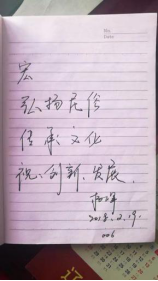 No.
Date
宏
弘扬民俗
传承文化
祝:创新.发展.
2018.2.19.
006